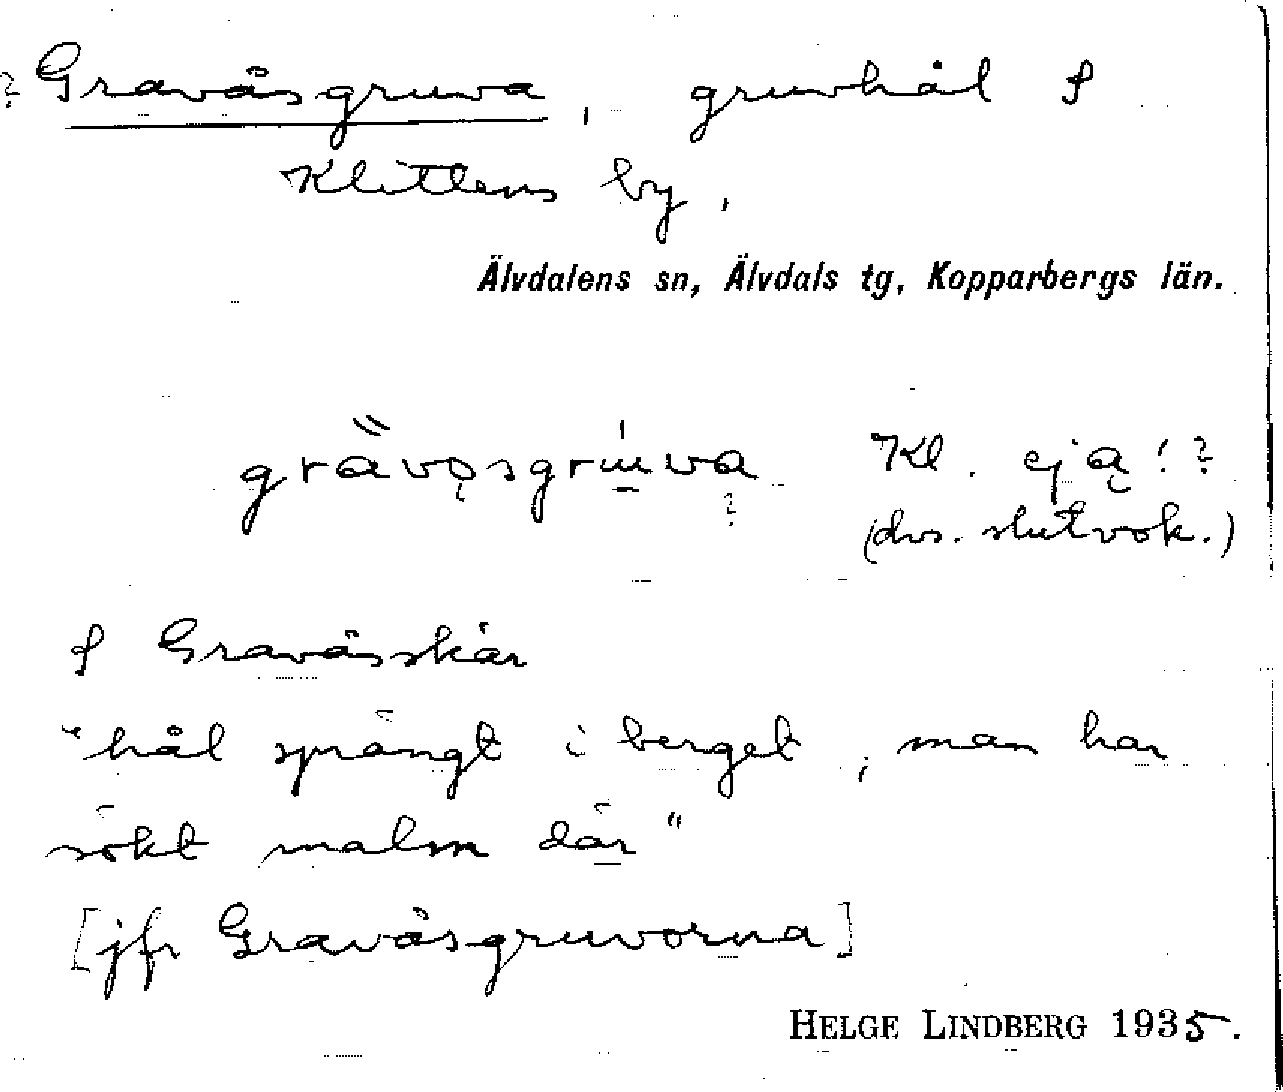 ? Gravåsgruva, gruvhål på
Klittens by,
Älvdalens sn, Älvdals tg, Kopparbergs län.
grävǫsgruwa Kl. ej ą!?
?
(dvs. slutvok.)
på Gravåsskär
"hål sprängt i berget, man har
sökt malm där"
[jfr Gravåsgruvorna]
HELGE LINDBERG 1935.